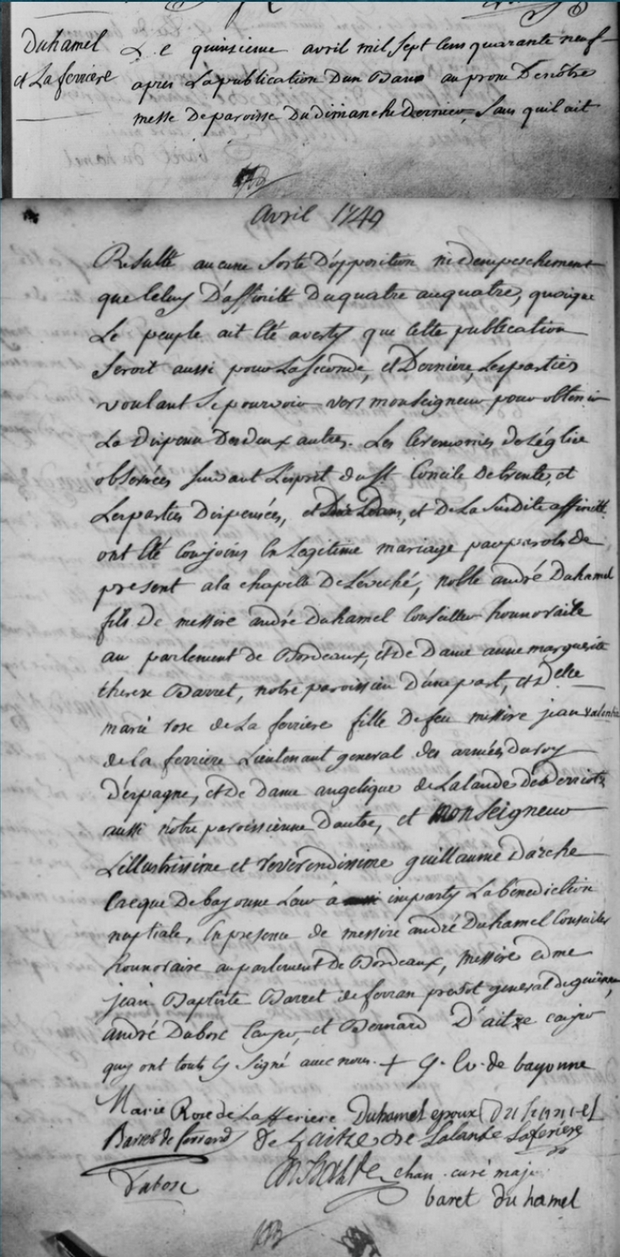 Duhamel
et Laferriere
Le quinsieme avril mil sept cens quarante neuf
apres La publication Dun Ban au prone De nôtre
messe De paroisse Du Dimanche Dernier, Sans quil ait
Avril 1749
Resulté aucune sorte D'opposition ni dempeschement
que Celuy D'affinité Du quatre au quatre, quoique
Le peuple ait été averty que Cette publication
Seroit aussi pour La Seconde, et Derniere, Les parties
voulant Se pourvoir vers monseigneur pour obtenir
La Dispense Des deux autres. Les Ceremonies de Léglise
observées suivant L'esprit du st Concile de trente, et
Les parties Dispensées, et de La Susdite affinité
ont été Conjoins en Legitime mariage par parole De
present a la chapelle De Leveché, noble andré Duhamel
fils De messire andré Duhamel Conseiller honnoraire
au parlement de Bordeaux, et de Dame anne marguerite
therese Barret, notre paroissien D'une part, et Delle
marie rose de La ferriere fille De feu messire jean valentin
de la ferriere Lieutenant general des armées du roy
D'espagne, et De Dame angelique de Lalande de
aussi nôtre paroissienne D'autre, et Monseigneur
L'illustrissime et reverendissime guillaume D'arche
Eveque De bayonne Leur à imparty La benediction
nuptiale, En presence de messire andré Duhamel Conseiller
honnoraire au parlement De Bordeaux, messire edme
jean Baptiste Barret de ferran prevôt general de guienne,
andré Dabosc et Bernard D'aitze
quy ont touts Signé avec nous. + g. Ev. de bayonne
Marie Rose de Lafferiere Duhamel epoux
Baret de ferrand de Lalande Laferiere
Dabosc chan. curé maj
baret duhamel